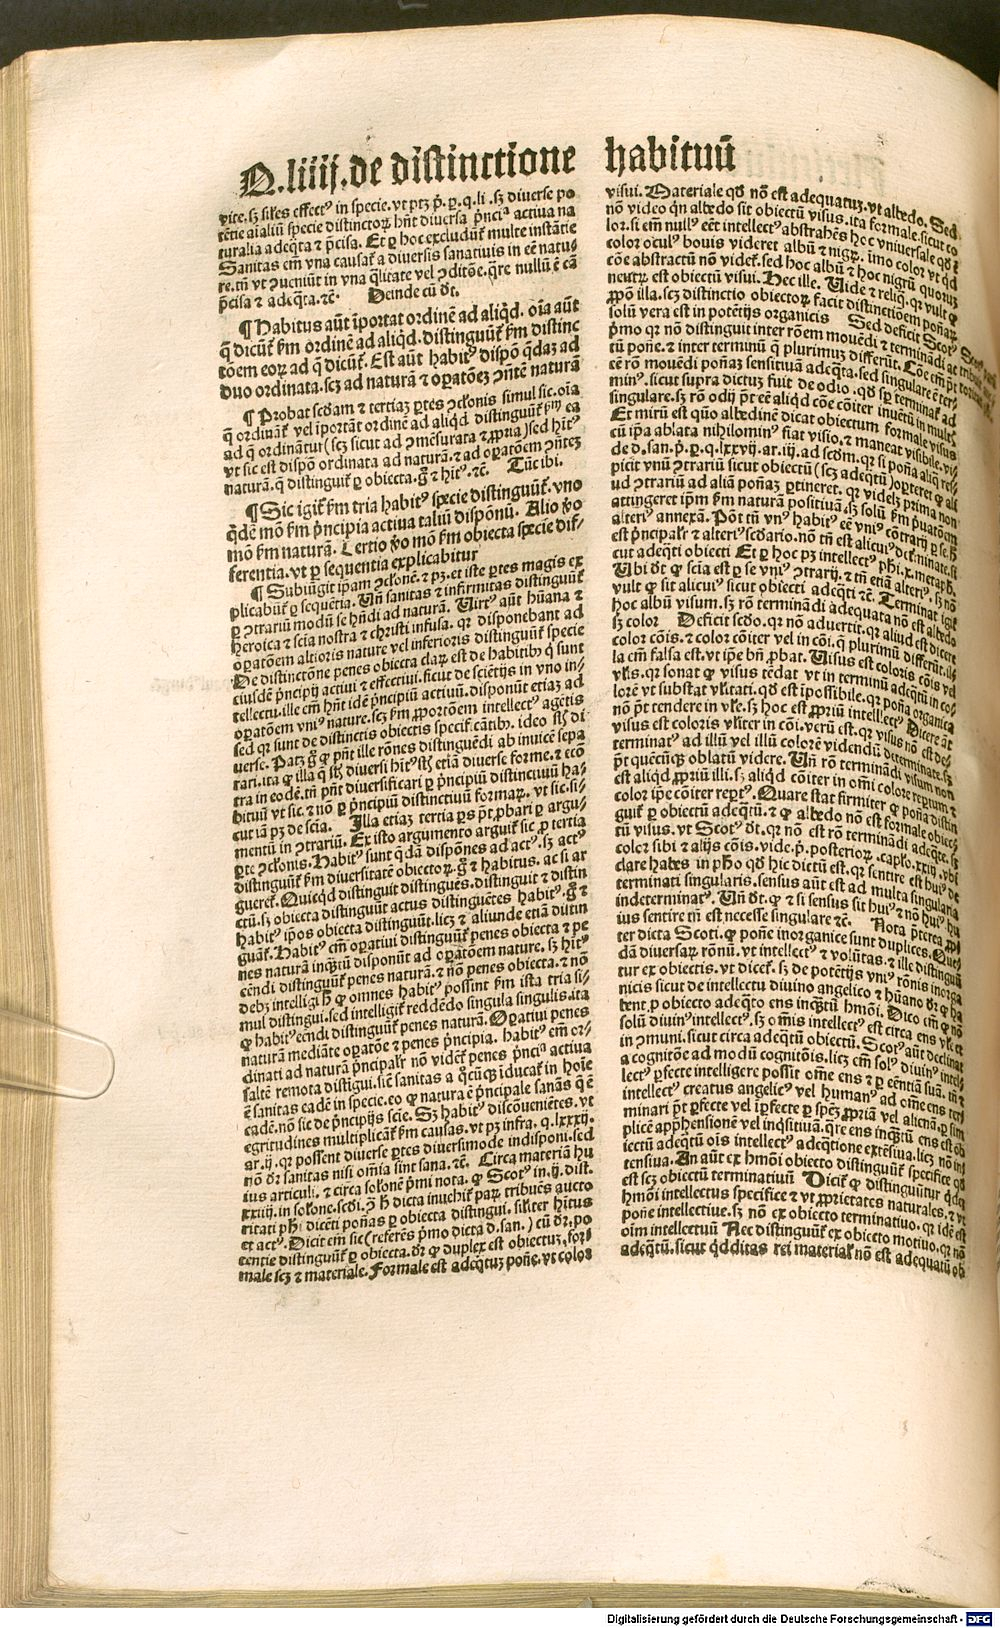 Q.liiij.de distinctione habituū
vite.sꝫ siĺes effectꝰ in specie.vt ptꝫ p̄.p̱.q.li.sꝫ diuerse po
tētie ai aliū specie distinctoꝝ hn̄t diuersa p̄nciᵃ actiua na
turalia adeq̄ta ⁊ p̄cisa. Et p̱ hoc excludūt̄ multe instātie
Sanitas em̄ vna causat̄ a diuersis sanatiuis in eē natu-
re.tn̄ vt ꝯueniūt in vna q̄litate vel ꝯditōe.q̄re nullū ē cā
p̄cisa ⁊ adeq̄ta.⁊c̄. Deinde cū dt̄.
¶ Habitus aūt īportat ordinē ad aliqd̄. oīa aūt
q̄ dicūt̄ ẜm ordinē ad aliqd̄.distinguūt̄ ẜm distinc
tōem eoꝝ ad q̄ dicūt̄. Est aūt habitꝰ dispō q̄daꝫ ad
duo ordinata.scꝫ ad naturā ⁊ op̱atōeꝫ ꝯn̄tē naturā
¶ Probat scḋam ⁊ tertiaꝫ p̱tes ꝯclonis simul sic.oīa
q̄ ordināt̄ vel īportāt ordinē ad aliqd̄ distinguūt̄ ẜm ea
ad q̄ ordinātur (scꝫ sicut ad ꝯmēsurata ⁊ ꝓpria) sed hitꝰ
vt sic est dispō ordinata ad naturā.⁊ ad op̱atōem ꝯn̄teꝫ
naturā.q̄ distinguit̄ p̱ obiecta.g̊ ⁊ hitꝰ.⁊c̄. Tūc ibi.
¶ Sic igit̄ ẜm tria habitꝰ specie distinguūt̄.vno
q̇dē mō ẜm p̄ncipia actiua taliū dispōnū. Alio ꝟo
mō ẜm naturā. Tertio ꝟo mō ẜm obiecta specie dif-
ferentia.vt p̱ sequentia explicabitur
¶ Subiūgit ip̄am ꝯclonē.⁊ pꝫ.et iste p̱tes magis ex
plicabūt̄ p̱ sequētia. Vn̄ sanitas ⁊ infirmitas distinguūt̄
p̱ ꝯtrariū modū se hn̄di ad naturā. Virtꝰ aūt hūana ⁊
heroica ⁊ scia nostra ⁊ christi infusa. qꝛ disponebant ad
op̱atōem altioris nature vel inferioris distinguūt̄ specie
De distinctōne penes obiecta claꝝ est de habitibꝫ q̄ sunt
eiusdē p̄ncipij actiui ⁊ effectiui.sicut de sciētijs in vno in-
tellectu.ille em̄ hn̄t idē p̄ncipiū actiuū.disponūt etiaꝫ ad
op̱atōem vniꝰ nature.scꝫ ẜm ꝓportōem intellectꝰ agētis
sed qꝛ sunt de distinctis obiectis specif̄cātibꝫ. ideo sꝉ di
uerse. Patꝫ g̊ ꝙ pn̄t ille rōnes distinguēdi ab inuicē sepa
rari.ita ꝙ illa q̄ sꝉ diuersi hitꝰ etiā diuerse forme.⁊ ecō
tra in eodē.tn̄ pn̄t diuersificari p̱ p̄ncipiū distinctiuū ha-
bituū vt sic.⁊ nō p̱ p̄ncipiū distinctiuū formaꝝ. vt sic.si-
cut iā pꝫ de scia. Illa etiaꝫ tertia p̱s pt̄ ꝓbari p̱ argu-
mentū in ꝯtrariū. Ex isto argumento arguit̄ sic ꝓ tertia
p̱te ꝯclonis. Habitꝰ sunt q̇dā dispōnes ad actꝰ.sꝫ actꝰ
distinguūt̄ ẜm diuersitatē obiectoꝝ.g̊ ⁊ habitus. ac si ar
gueret̄. Quicqd̄ distinguit distinguēs.distinguit ⁊ distin
ctū.sꝫ obiecta distinguūt actus distinguētes habitꝰ.g̊ ⁊
habitꝰ ip̄os obiecta distinguūt.licꝫ ⁊ aliunde etiā distin
guāt̄. Habitꝰ em̄ op̱atiui distinguūt̄ penes obiecta ⁊ pe
nes naturā inqꝫtū disponūt ad op̱atōem nature. sꝫ hitꝰ
eēndi distinguūt̄ penes naturā.⁊ nō penes obiecta.⁊ nō
debꝫ intelligi ħ ꝙ omnes habitꝰ possint ẜm ista tria si-
mul distingui.sed intelligit̄ reddēdo singula singulis.ita
ꝙ habitꝰ eēndi distinguūt̄ penes naturā. Op̱atiui penes
naturā mediāte op̱atōe ⁊ penes p̄ncipia. habitꝰ em̄ or-
dinati ad naturā p̄ncipalr̄ nō vident̄ penes p̄nciᵃ actiua
saltē remota distigui.siue sanitas a q̇cūqꝫ īducat̄ in hoīe
ē sanitas eadē in specie.eo ꝙ natura ē p̄ncipale sanās q̄ ē
eadē.nō sic de p̄ncipijs scie. Sꝫ habitꝰ discōueniētes. vt
egritudines multiplicāt̄ ẜm causas. vt pꝫ infra. q.lxxxij.
ar.ij. qꝛ possent diuerse p̱tes diuersimode indisponi.sed
nō dr̄ sanitas nisi om̄ia sint sana.⁊c̄. Circa materiā hu
ius articuli. ⁊ circa solonē p̄mi nota. ꝙ Scotꝰ in.ij.dist.
xxiiij.in solone.scḋi.ꝯ ħ dicta inuehit̄ paꝝ tribuēs aucto
ritati ph̄i dicēti poñas p̱ obiecta distingui. siliter hītus
et actꝰ. Dicit em̄ sic (referēs p̄mo dicta d.san.) cū dr̄.po
tentie distinguūt̄ p̱ obiecta.dr̄ ꝙ duplex est obiectuꝫ.for-
male scꝫ ⁊ materiale. Formale est adeq̄tuꝫ pone.vt color
visui. Materiale qd̄ nō est adequatuꝫ.vt albedo. Sed
nō video qn̄ albedo sit obiectū visus.ita formale.sicut co
lor.si em̄ nullꝰ eēt intellectꝰ abstrahēs hoc vniuersale qd̄ ē
color oculꝰ bouis videret albū ⁊ nigꝝ. imo color vt qd̄
cōe abstractū nō videt̄.sed hoc albū ⁊ hoc nigrū quoruꝫ
neutꝝ est obiectū visui. Hec ille. Vide ⁊ reliq̄. qꝛ vult ꝙ
ꝓpō illa.scꝫ distinctio obiectoꝝ facit distinctiōem poñaꝝ
solū vera est in potētijs organicis Sed deficit Scotꝰ
p̄mo qꝛ nō distinguit inter rōem mouēdi ⁊ terminādi ac
tū poñe.⁊ inter terminū q̄ plurimuꝫ differūt. Cōe em̄ pt̄
eē rō mouēdi poñaꝫ sensitiuā adeq̄ta.sed singulare ē ter-
minꝰ.sicut supra dictuꝫ fuit de odio .qd̄ sp̱ terminat̄ ad
singulare.sꝫ rō odij pt̄ eē aliqd̄ cōe cōiter inuētū in multꝭ
Et mirū est quō albedinē dicat obiectum formale visus
cū ip̄a ablata nihilominꝰ fiat visio.⁊ maneat visibile.vi-
de d.san.p̄.p̱.q.lxxvij.ar.iij.ad scḋm.qꝛ si poña aliq̄ res-
picit vnū ꝯtrariū sicut obiectū (scꝫ adeq̄tū) oꝑteret ꝙ ali
ud ꝯtrariū ad aliā poñaꝫ p̱tineret. qꝛ videlꝫ prima non
attingeret ip̄m ẜm naturā positiuā.sꝫ solū ẜm p̄uatōem
alteriꝰ annexā. Pōt tn̄ vnꝰ habitꝰ eē vniꝰ cōtrarij p̱ se.ħ
est p̄ncipalr̄ ⁊ alteriꝰ scḋario.nō tn̄ est alicuiꝰ det̄minate.si
cut adeq̄ti obiecti Et p̱ hoc pꝫ intellectꝰ ph̄i.x.metaph̄.
Vbi dt̄ ꝙ scia est p̱ se vniꝰ ꝯtrarij.⁊ tn̄ etiā alteriꝰ.sꝫ nō
vult ꝙ sit alicuiꝰ sicut obiecti adeq̄ti ⁊c̄. Terminat igit̄
hoc albū visum.sꝫ rō terminādi adequata nō est albedo
sꝫ color Deficit scḋo.qꝛ nō aduertit.qꝛ aliud est dicere
color cōis.⁊ color cōiter vel in cōi.q̄ plurimū differūt.il-
la em̄ falsa est.vt ip̄e bn̄ ꝓbat. Visus est coloris cōis vel
vꝉis.qꝛ sonat ꝙ visus tēdat vt in terminū adeq̄tū in co-
lorē vt substat vꝉitati.qd̄ est īpossibile.qꝛ poña organica
nō pt̄ tendere in vꝉe.sꝫ hoc est ꝓpriū intellectꝰ Dicere aūt
visus est coloris vꝉiter in cōi.verū est.qꝛ visus nō est de-
terminatꝰ ad illū vel illū colorē videndū determinate.sꝫ
pt̄ quēcūqꝫ oblatū videre. Vn̄ rō terminādi visum non
est aliqd̄ ꝓpriū illi.sꝫ aliqd̄ cōiter in om̄i colore repertum ⁊
color ip̄e cōiter reptꝰ. Quare stat firmiter ꝙ poña distin
guit̄ p̱ obiectū adeq̄tū.⁊ ꝙ albedo nō est formale obiec-
tū visus.vt Scotꝰ dt̄.qꝛ nō est rō terminādi adeq̄te.sꝫ
color sibi ⁊ alijs cōis.vide.p̄.posterioꝝ .capl̊o.xxiij.vbi
clare habes in ph̊o qd̄ hic dictū est.qꝛ sentire est huiꝰ de
terminati singularis.sensus aūt est ad multa singularia
indeterminatꝰ. Vn̄ dt̄.ꝙ ⁊ si sensus sit huiꝰ ⁊ nō huiꝰ hu
ius sentire tn̄ est necesse singulare ⁊c̄. Nota p̄terea ꝓp
ter dicta Scoti.ꝙ poñe inorganice sunt duplices. Que-
dā diuersaꝝ rōnū.vt intellectꝰ ⁊ volūtas.⁊ ille distinguū
tur ex obiectis.vt dicet̄.sꝫ de potētijs vniꝰ rōnis inorga
nicis sicut de intellectu diuino angelico ⁊ hūano dr̄ ꝙ ha
bent.p̱ obiecto adeq̄to ens inqꝫtū hmōi. Dico em̄ ꝙ nō
solū diuinꝰ intellectꝰ.sꝫ om̄is intellectꝰ est circa ens vꝉe et
in ꝯmuni.sicut circa adeq̄tū obiectū. Scotꝰ aūt declinat
a cognitōe ad modū cognitōis.licꝫ em̄ solꝰ diuinꝰ intel-
lectꝰ p̱fecte intelligere possit om̄e ens ⁊ p̱ eēntiā suā. tn̄ ⁊
intellectꝰ creatus angelicꝰ vel humanꝰ ad om̄e ens ter-
minari pt̄ p̱fecte vel īp̱fecte p̱ spēꝫ ꝓpriā vel alienā.p̱ sim
plicē app̄hensionē vel inq̇sitiuā.q̄re ens inqꝫtū ens est ob
iectū adeq̄tū oīs intellectꝰ adeq̄tione extēsiua.licꝫ nō in-
tensiua. An aūt ex hmōi obiecto distinguūt̄ specifice qd̄
est scꝫ obiectū terminatiuū Dicit̄ ꝙ distinguūtur q̇deꝫ
hmōi intellectus specifice ⁊ vt ꝓprietates naturales.⁊ vt
poñe intellectiue.sꝫ nō ex obiecto terminatiuo.qꝛ idē est
oīm intellectuū Nec distinguūt̄ ex obiecto motiuo.qꝛ nō
adeq̄tū.sicut q̇dditas rei material̄ nō est adequatū ob
Digitalisierung gefördert durch die Deutsche Forschungsgemeinschaft - DFG